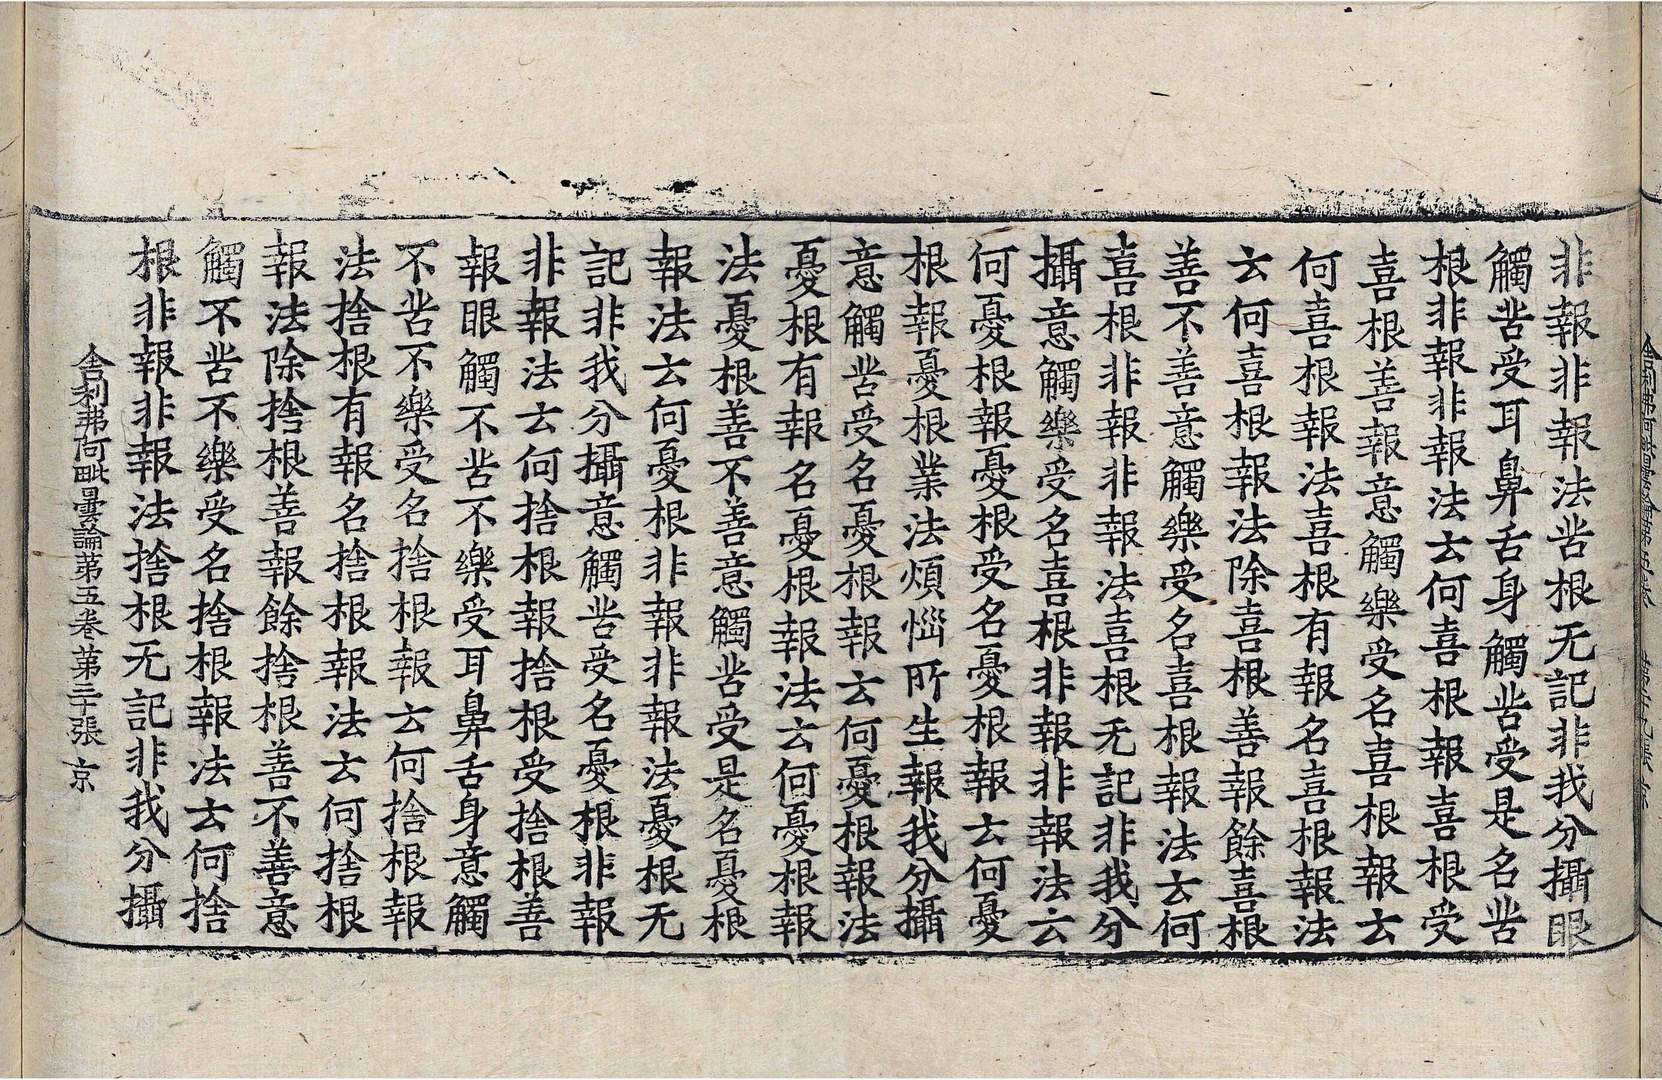 非報非報法苦根无記非我分攝眼
觸苦受耳鼻舌身觸苦受是名苦
根非報非報法云何喜根報喜根受
喜根善報意觸樂受名喜根報云
何喜根報法喜根有報名喜根報法
云何喜根報法除喜根善報餘喜根
善不善意觸樂受名喜根報法云何
喜根非報非報法喜根无記非我分
攝意觸樂受名喜根非報非報法云
何憂根報憂根受名憂根報云何憂
根報憂根業法煩惱所生報我分攝
意觸苦受名憂根報云何憂根報法
憂根有報名憂根報法云何憂根報
法憂根善不善意觸苦受是名憂根
報法云何憂根非報非報法憂根无
記非我分攝意觸苦受名憂根非報
非報法云何捨根報捨根受捨根善
報眼觸不苦不樂受耳鼻舌身意觸
不苦不樂受名捨根報云何捨根報
法捨根有報名捨根報法云何捨根
報法除捨根善報餘捨根善不善意
觸不苦不樂受名捨根報法云何捨
根非報非報法捨根无記非我分攝
舍利弗阿毗曇論第五卷 第三十張 京